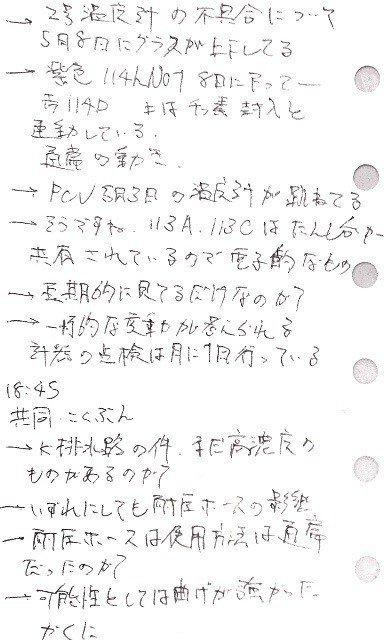 → 2号温度計の不具合について
5月8日にグラフが上下してる
→ 紫色 114L No7 8日に下って
青114D は窒素封入と
連動している.
通常の動き.
→ PCV 5月3日の温度計が跳ねてる
→ そうですね. 113A. 113Cは
共有されているので電子的なもの
→ 短期的に見てるだけなのか?
→ 一時的な変動が考えられる
計器の点検は月に1回行っている
18:45
共同. こくぶん
→ K排水路の件. まだ高濃度の
ものがあるのか?
→ いずれにしても耐圧ホースの影響
→ 耐圧ホースは使用方法は通常
だったのか?
→ 可能性としては曲げが強かった
かくに